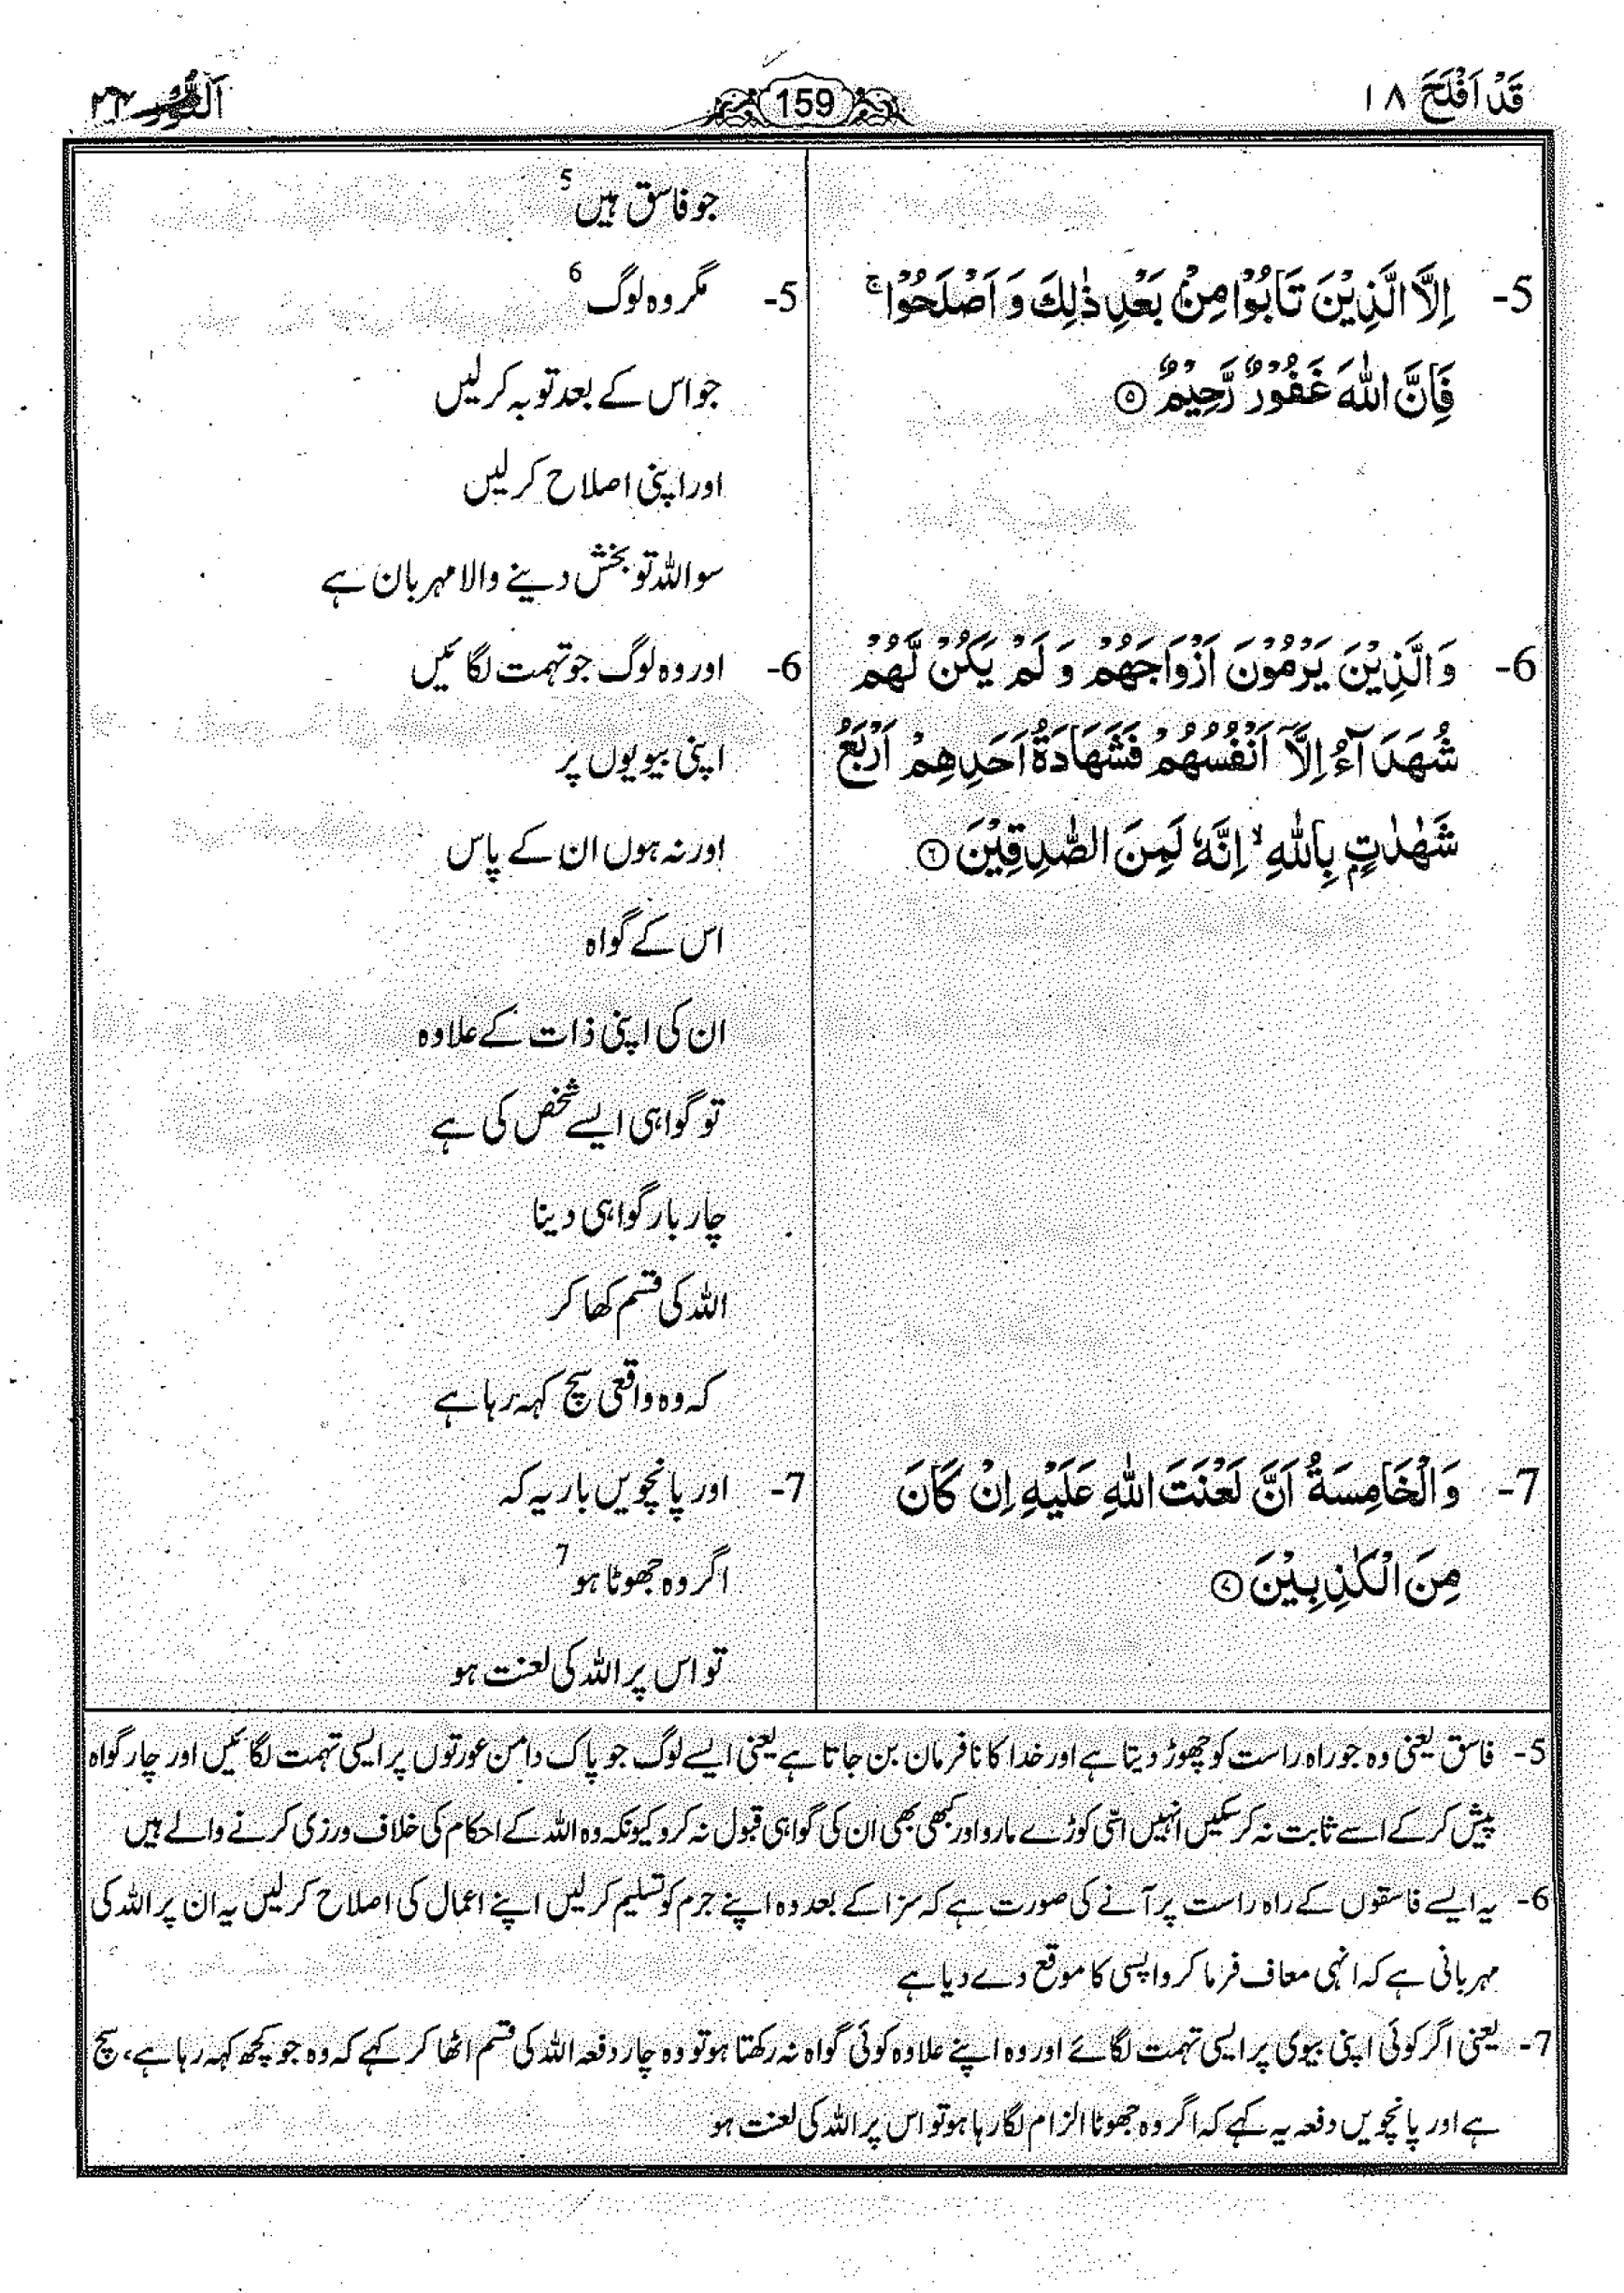 قَدْ اَفْلَحَ ١٨
159
اَلنُّوْر ٢٤
جو فاسق ہیں 5
5- اِلَّا الَّذِيْنَ تَابُوْا مِنْۢ بَعْدِ ذٰلِكَ وَ اَصْلَحُوْا ۚ
فَاِنَّ اللّٰهَ غَفُوْرٌ رَّحِيْمٌ ۝٥
5- مگر وہ لوگ 6
جو اس کے بعد توبہ کر لیں
اور اپنی اصلاح کر لیں
سو اللہ تو بخش دینے والا مہربان ہے
6- وَ الَّذِيْنَ يَرْمُوْنَ اَزْوَاجَهُمْ وَ لَمْ يَكُنْ لَّهُمْ
شُهَدَآءُ اِلَّاۤ اَنْفُسُهُمْ فَشَهَادَةُ اَحَدِهِمْ اَرْبَعُ
شَهٰدٰتٍۭ بِاللّٰهِ ۙ اِنَّهٗ لَمِنَ الصّٰدِقِيْنَ ۝٦
6- اور وہ لوگ جو تہمت لگائیں
اپنی بیویوں پر
اور نہ ہوں ان کے پاس
اس کے گواہ
ان کی اپنی ذات کے علاوہ
تو گواہی ایسے شخص کی ہے
چار بار گواہی دینا
اللہ کی قسم کھا کر
کہ وہ واقعی سچ کہہ رہا ہے
7- وَ الْخَامِسَةُ اَنَّ لَعْنَتَ اللّٰهِ عَلَيْهِ اِنْ كَانَ
مِنَ الْكٰذِبِيْنَ ۝٧
7- اور پانچویں بار یہ کہ
اگر وہ جھوٹا ہو 7
تو اس پر اللہ کی لعنت ہو
5- فاسق یعنی وہ جو راہ راست کو چھوڑ دیتا ہے اور خدا کا نافرمان بن جاتا ہے یعنی ایسے لوگ جو پاک دامن عورتوں پر ایسی تہمت لگائیں اور چار گواہ
پیش کر کے اسے ثابت نہ کر سکیں انہیں اسی کوڑے مارو اور کبھی بھی ان کی گواہی قبول نہ کرو کیونکہ وہ اللہ کے احکام کی خلاف ورزی کرنے والے ہیں
6- یہ ایسے فاسقوں کے راہ راست پر آنے کی صورت ہے کہ سزا کے بعد وہ اپنے جرم کو تسلیم کر لیں اپنے اعمال کی اصلاح کر لیں یہ ان پر اللہ کی
مہربانی ہے کہ انہی معاف فرما کر واپسی کا موقع دے دیا ہے
7- یعنی اگر کوئی اپنی بیوی پر ایسی تہمت لگائے اور وہ اپنے علاوہ کوئی گواہ نہ رکھتا ہو تو وہ چار دفعہ اللہ کی قسم اٹھا کر کہے کہ وہ جو کچھ کہہ رہا ہے، سچ
ہے اور پانچویں دفعہ یہ کہے کہ اگر وہ جھوٹا الزام لگا رہا ہو تو اس پر اللہ کی لعنت ہو